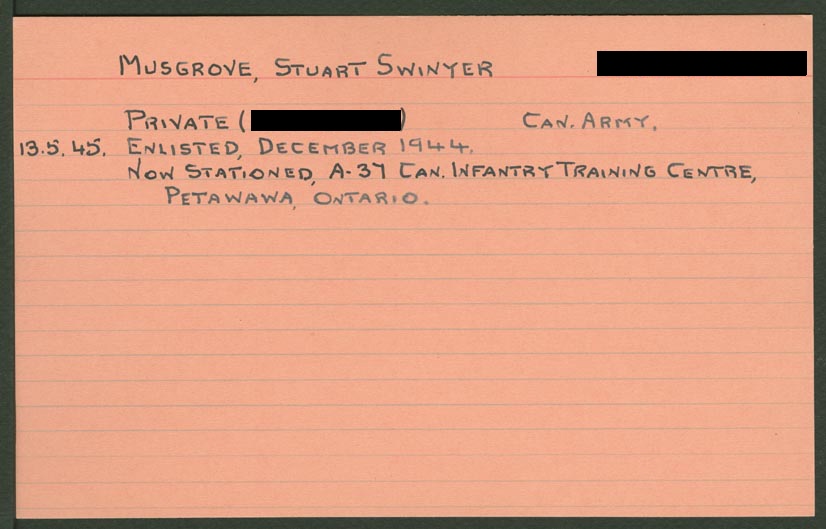 MUSGROVE, STUART SWINYER
PRIVATE ( ) CAN. ARMY.
13.5.45. ENLISTED, DECEMBER 1944.
NOW STATIONED, A-37 CAN. INFANTRY TRAINING CENTRE,
PETAWAWA, ONTARIO.